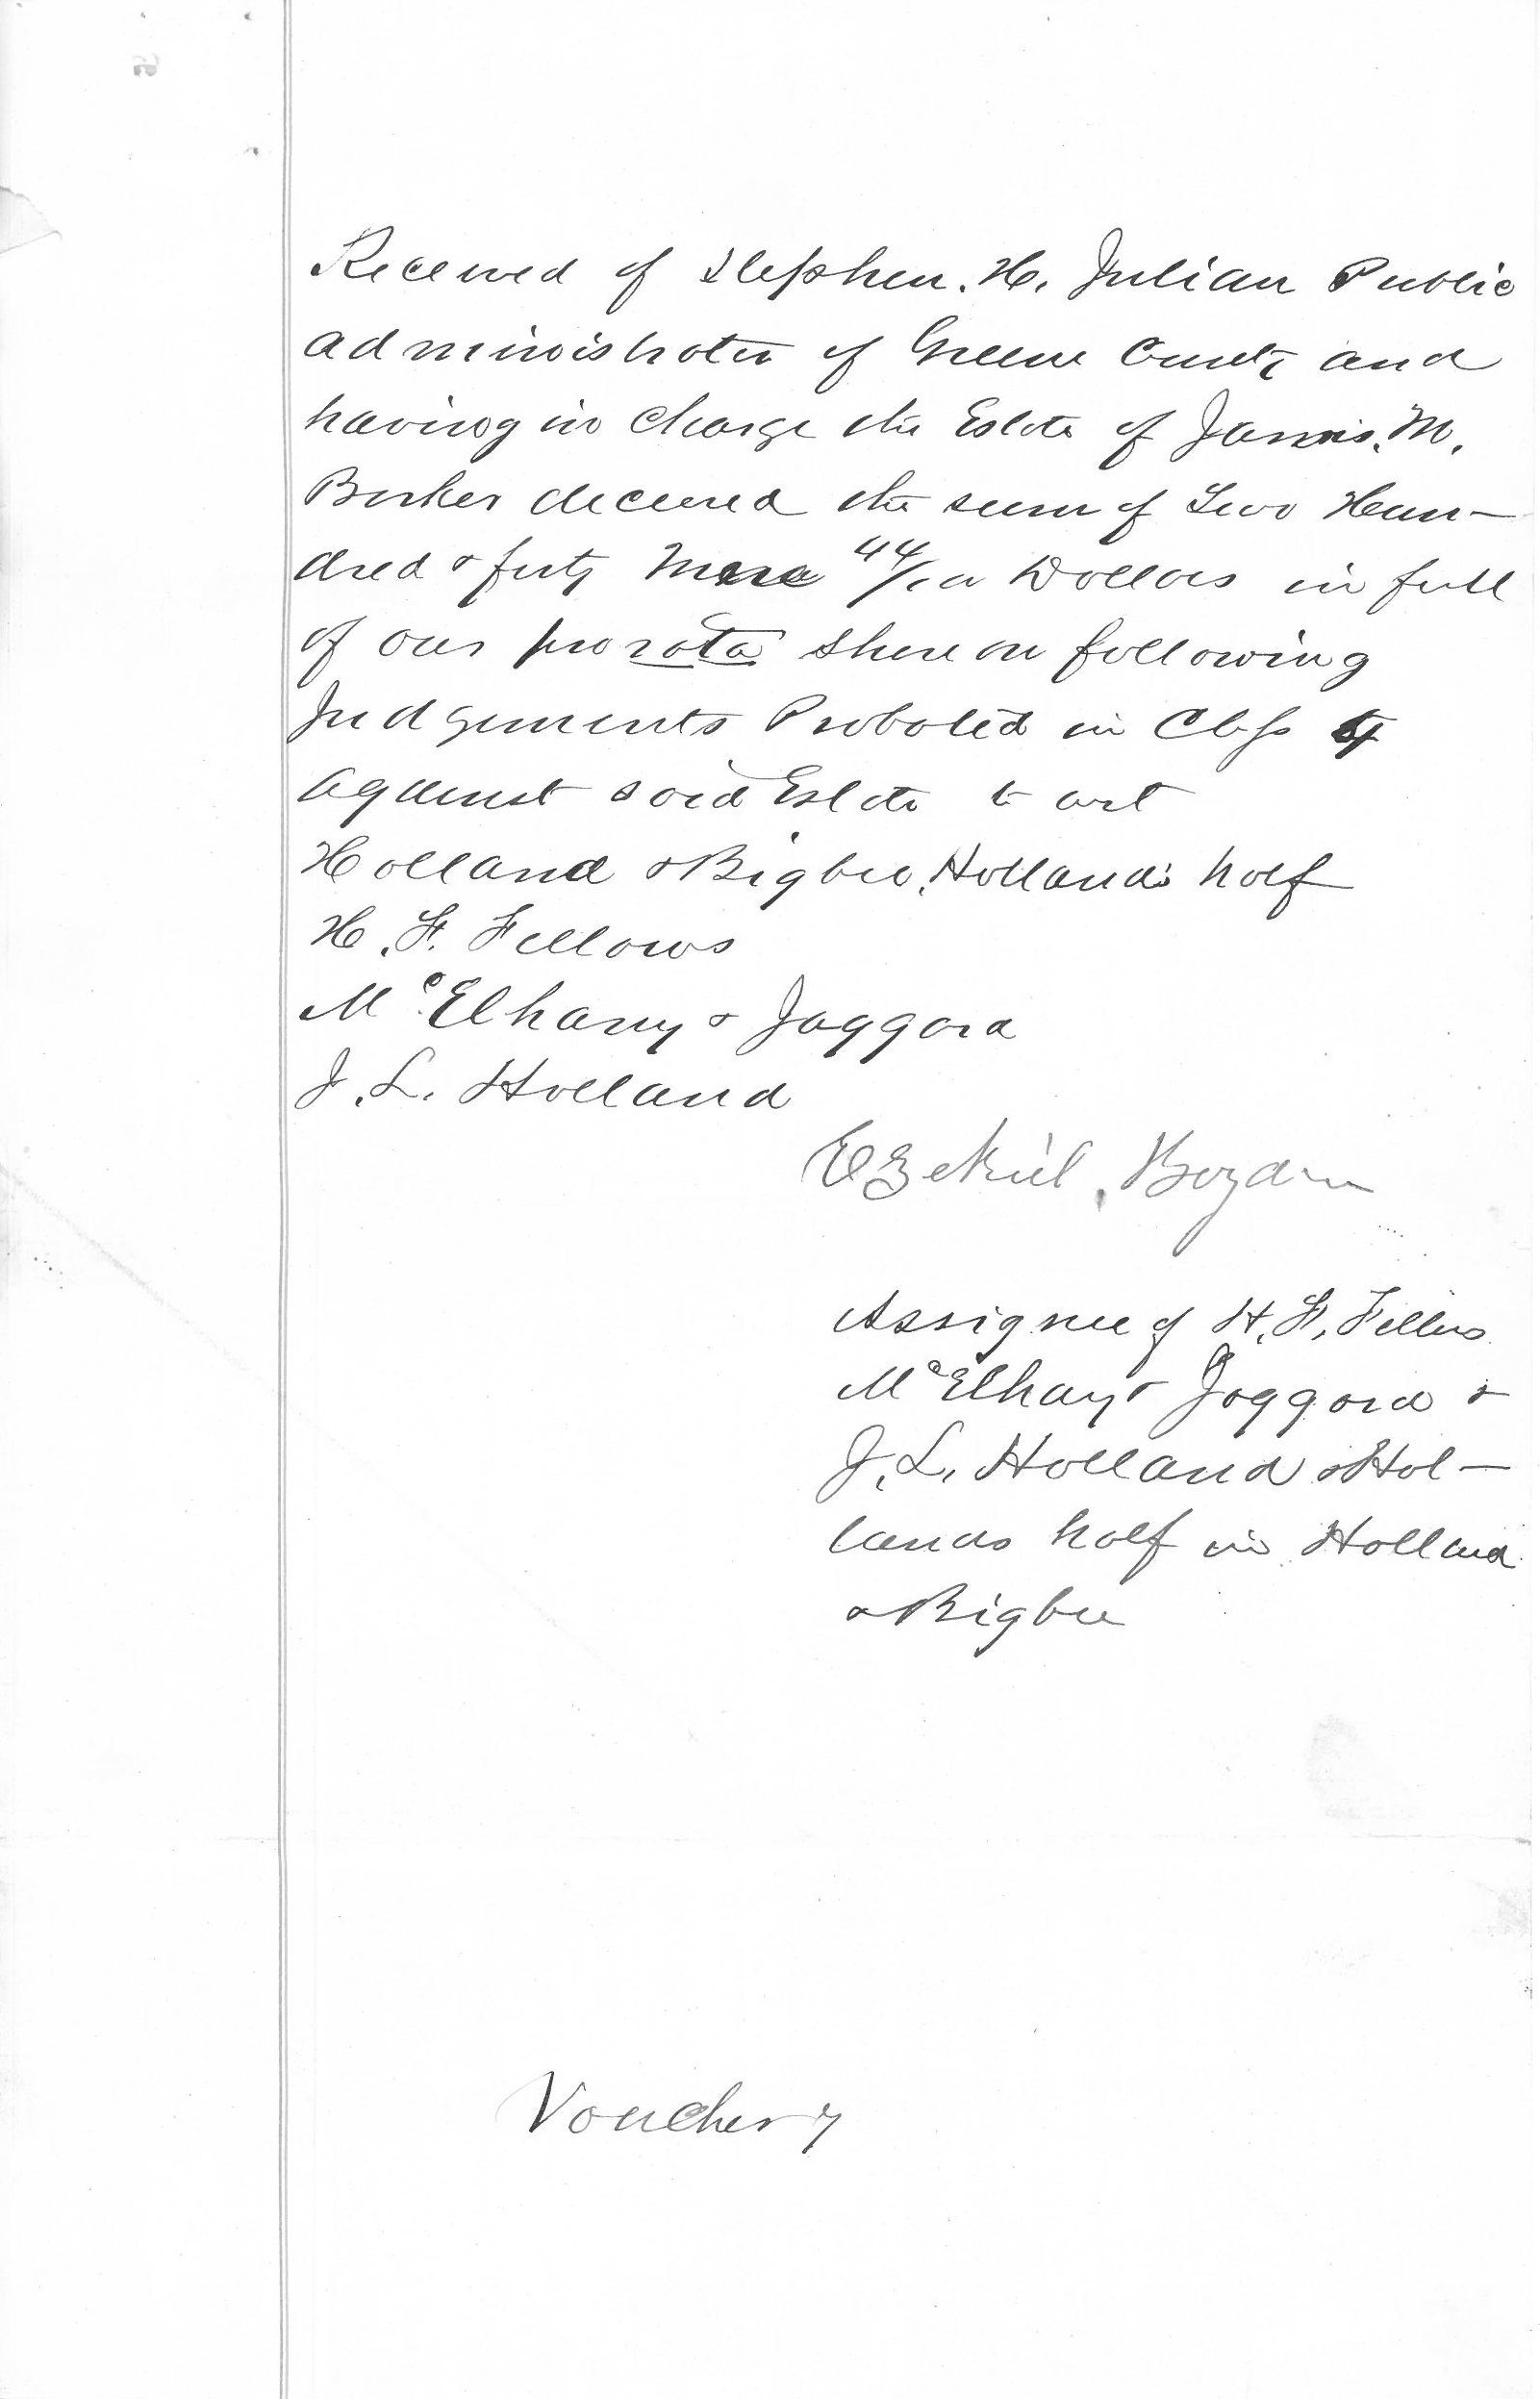 Received of Stephen. H. Julian Public
administrator of Greene County and
having in charge the Estate of James. M.
Barker deceased the sum of Two Hun-
dred & forty 44/100 Dollars in full
of our pro rata share on following
Judgements Probated in Class
against said Estate to wit
Holland & Bigbee, Hollands half
H. F. Fellows
McElhany & Jaggard
J. L. Holland
Ezekiel. Boyden
Assignee of H. F. Fellows
McElhany & Jaggard &
J. L. Holland & Hol-
lands half in Holland
& Bigbee
Voucher 7